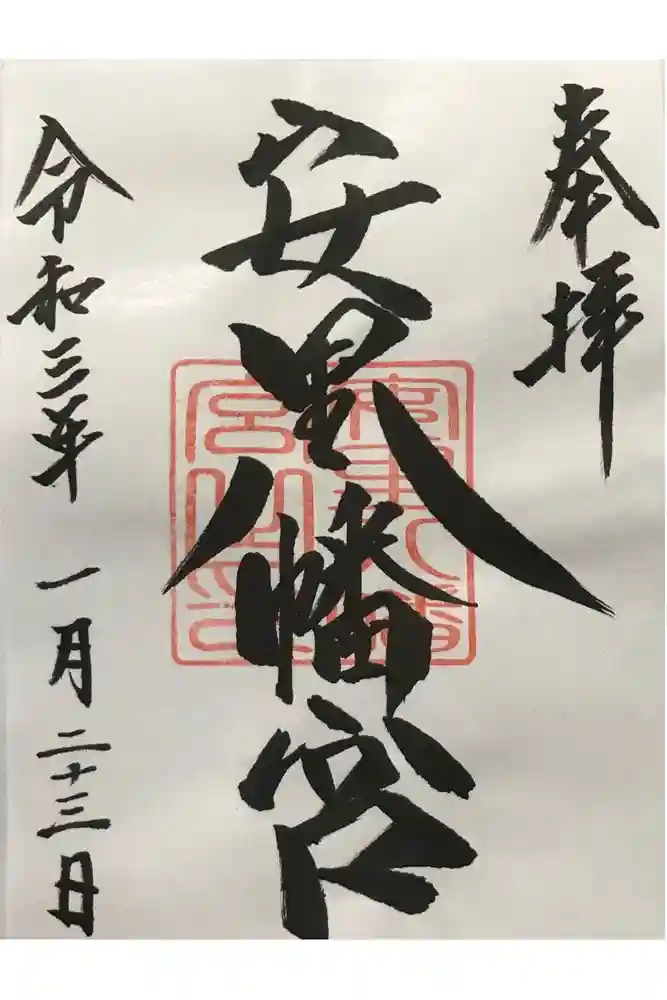 奉拝
安里八幡宮
令和三年 一月 二十三日